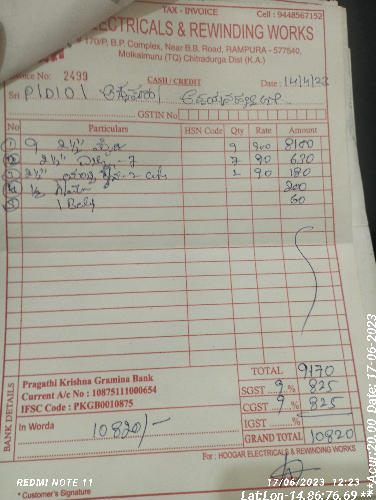 TAX - INVOICE
Cell : 9448567152
ELECTRICALS & REWINDING WORKS
# 170/P, B.P. Complex, Near B.B. Road, RAMPURA - 577540,
Molkalmuru (TQ) Chitradurga Dist (K.A.)
Invoice No: 2499 CASH / CREDIT Date : 14/4/23
Sri PDO
GSTIN No
No Particulars HSN Code Qty Rate Amount
1 9 2½" 9 900 8100
2½" - 7 7 90 630
2½" 2 90 180
200
1 Belt 60
Pragathi Krishna Gramina Bank
Current A/c No : 10875111000654
IFSC Code : PKGB0010875
BANK DETAILS
TOTAL 9170
SGST 9 % 825
CGST 9 % 825
IGST %
In Words 10820/-
GRAND TOTAL 10820
For : HOOGAR ELECTRICALS & REWINDING WORKS
* Customer's Signature
REDMI NOTE 11
17/06/2023 12:23
Lat:Lon-14.86:76.69***Acur:20.00 Date: 17-06-2023